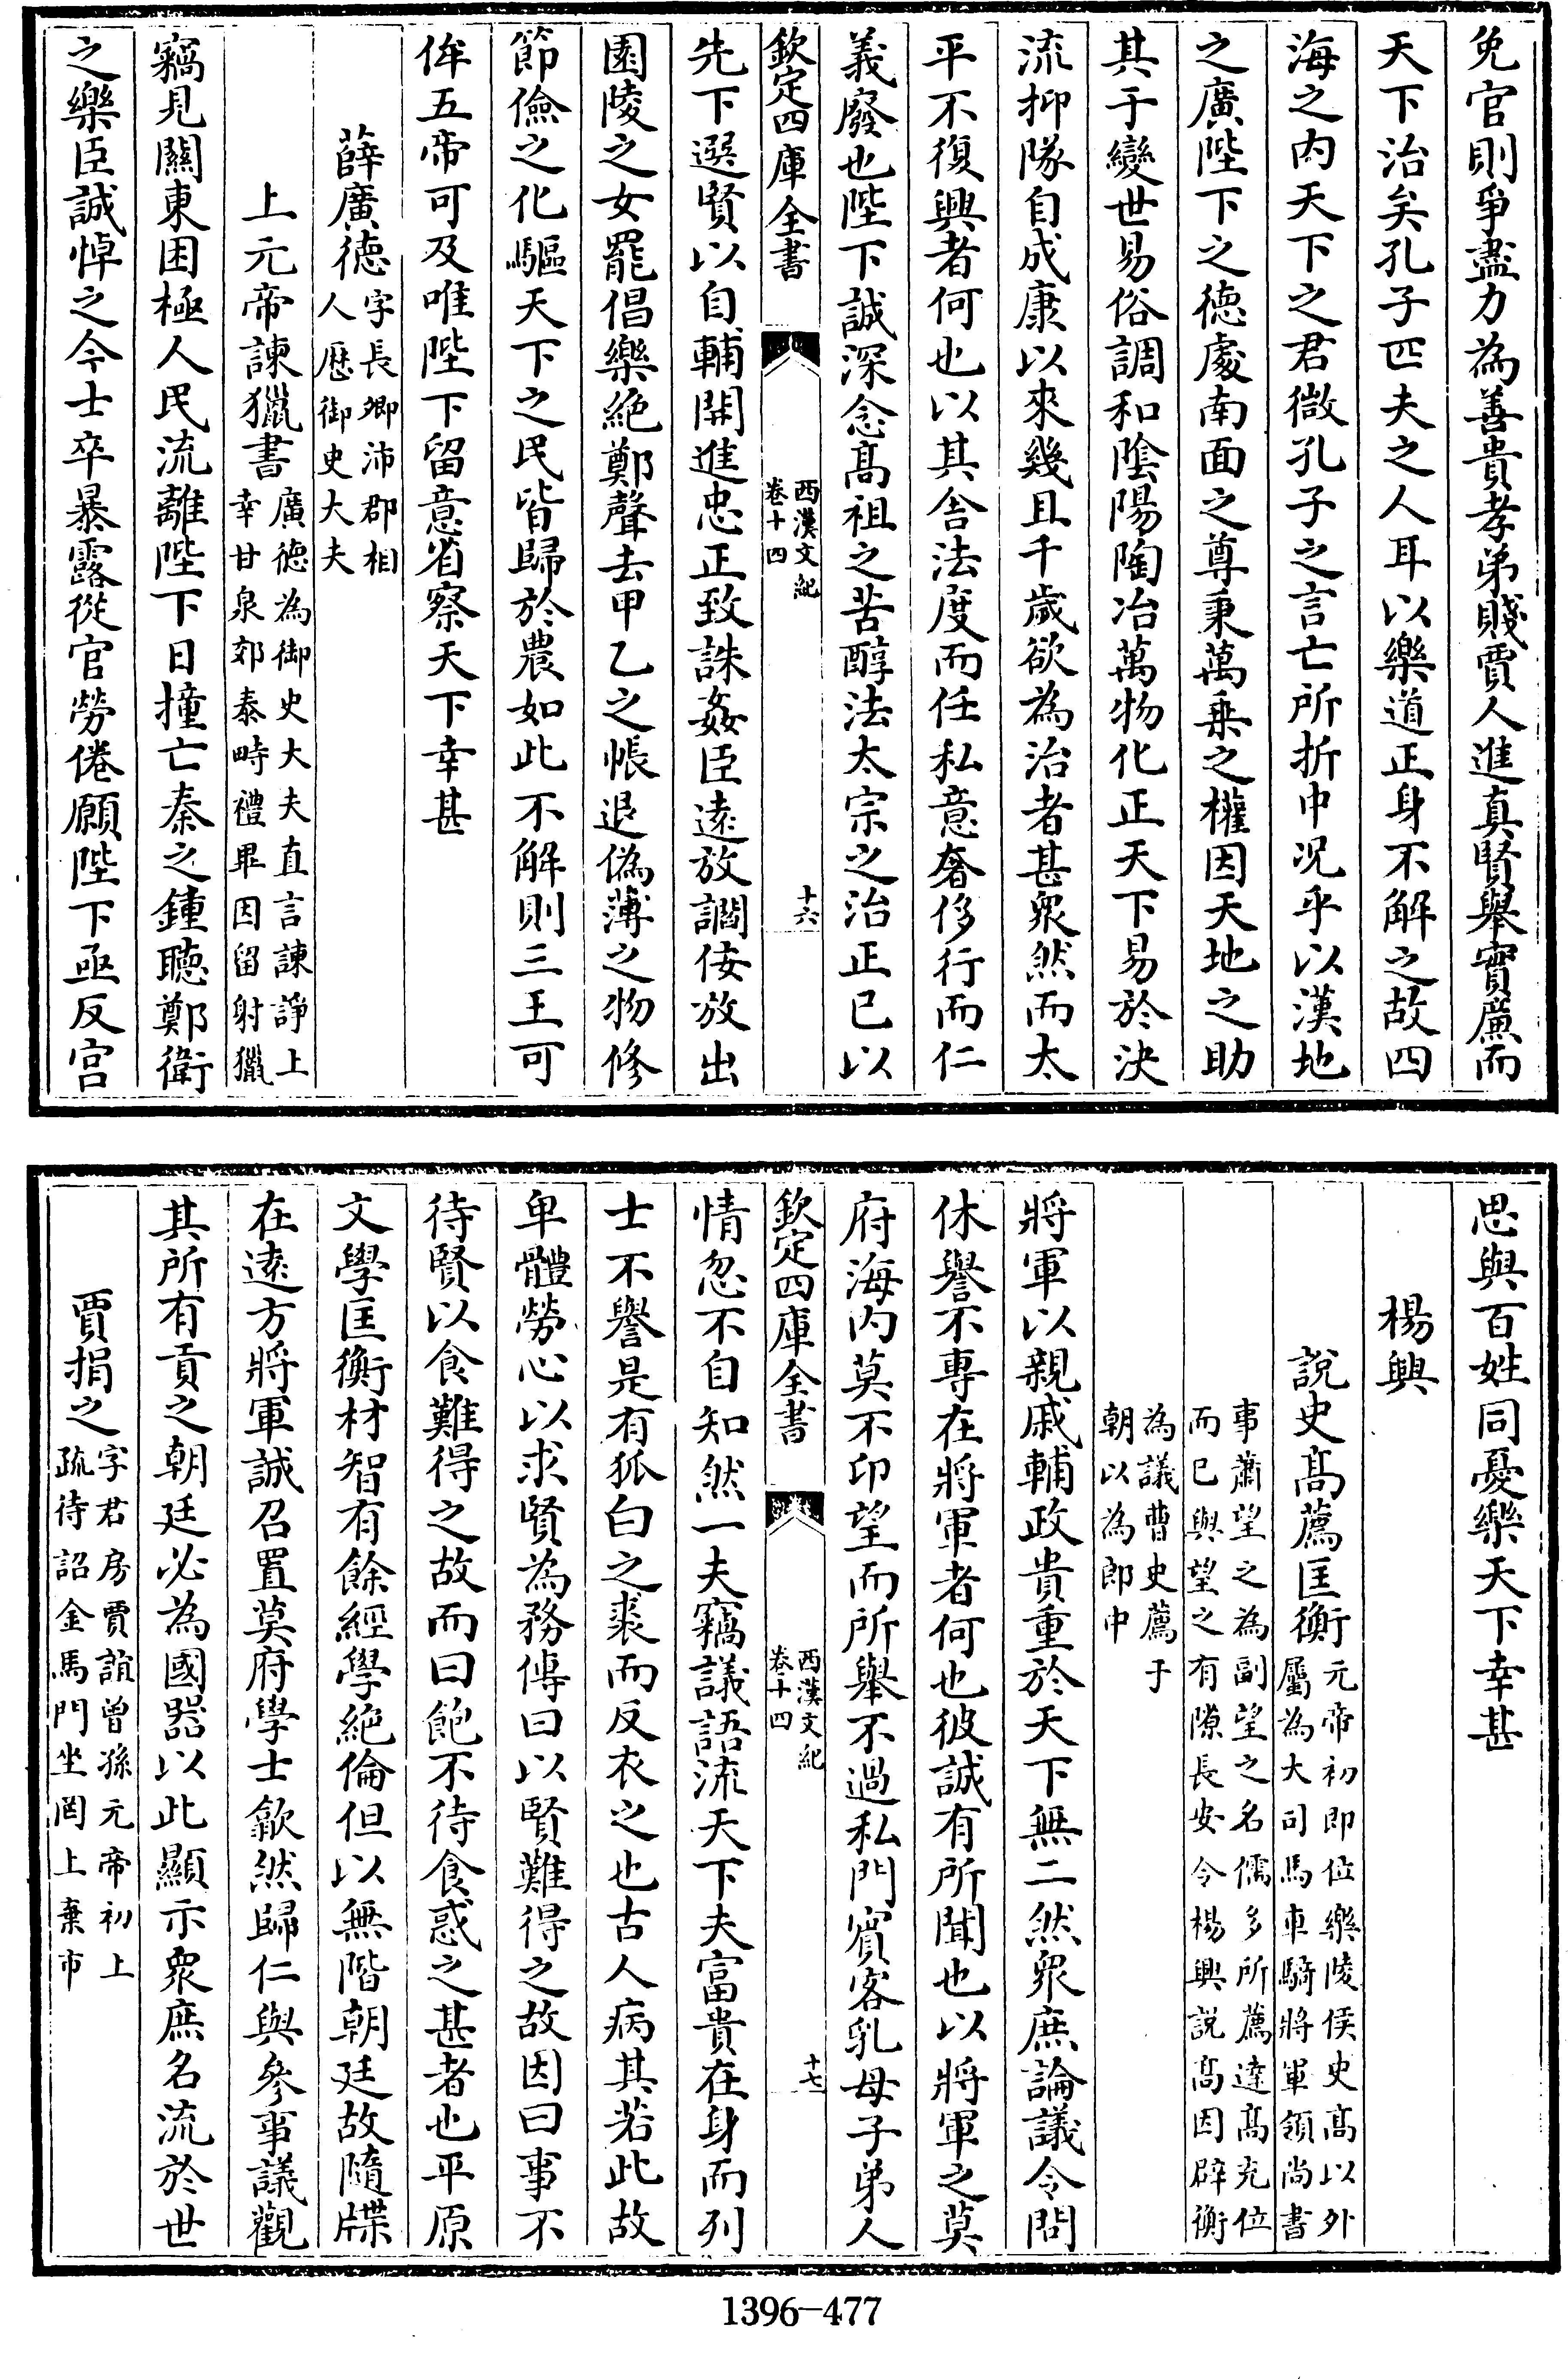 免官則爭盡力為善貴孝弟賤賈人進真賢舉實廉而
天下治矣孔子匹夫之人耳以樂道正身不解之故四
海之内天下之君微孔子之言亡所折中况乎以漢地
之廣陛下之德處南面之尊秉萬乗之權因天地之助
其于變世易俗調和陰陽陶冶萬物化正天下易於決
流抑隊自成康以來幾且千歲欲為治者甚衆然而太
平不復興者何也以其舍法度而任私意奢侈行而仁
義廢也陛下誠深念髙祖之苦醇法太宗之治正已以
欽定四庫全書
西漢文紀
卷十四
十六
先下選賢以自輔開進忠正致誅姦臣逺放讇佞放出
園陵之女罷倡樂絶鄭聲去甲乙之帳退偽薄之物修
節儉之化驅天下之民皆歸於農如此不解則三王可
侔五帝可及唯陛下留意省察天下幸甚
薛廣德字長卿沛郡相
人歴御史大夫
上元帝諫獵書廣德為御史大夫直言諫諍上
幸甘泉郊泰畤禮畢因留射獵
竊見關東困極人民流離陛下日撞亡秦之鍾聽鄭衛
之樂臣誠悼之今士卒暴露從官勞倦願陛下亟反宫
思與百姓同憂樂天下幸甚
楊興
說史髙薦匡衡元帝初即位樂陵侯史髙以外
屬為大司馬車騎將軍領尚書
事蕭望之為副望之名儒多所薦達髙充位
而已與望之有隙長安令楊興説髙因辟衡
為議曹史薦于
朝以為郎中
將軍以親戚輔政貴重於天下無二然衆庶論議令問
休譽不專在將軍者何也彼誠有所聞也以將軍之莫
府海内莫不卬望而所舉不過私門賓客乳母子弟人
欽定四庫全書
西漢文紀
卷十四
十七
情忽不自知然一夫竊議語流天下夫富貴在身而列
士不譽是有狐白之裘而反衣之也古人病其若此故
卑體勞心以求賢為務傳曰以賢難得之故因曰事不
待賢以食難得之故而曰飽不待食惑之甚者也平原
文學匡衡材智有餘經學絶倫但以無階朝廷故隨牒
在逺方將軍誠召置莫府學士歙然歸仁與參事議觀
其所有貢之朝廷必為國器以此顯示衆庶名流於世
賈捐之字君房賈誼曾孫元帝初上
疏待詔金馬門坐罔上棄市
1396-477